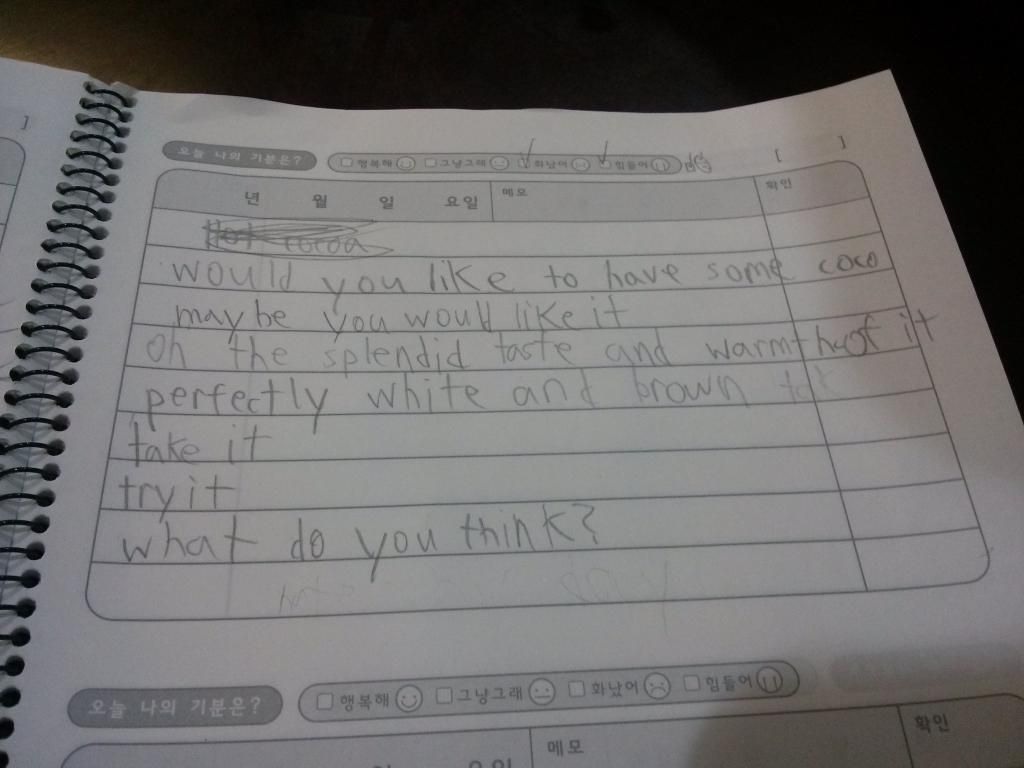 오늘 나의 기분은? 행복해 그냥그래 화났어 힘들어 [ ]
년 월 일 요일 메모 확인
Hot cocoa
would you like to have some coco
maybe you would like it
Oh the splendid taste and warmth of it
perfectly white and brown
take it
try it
what do you think?
오늘 나의 기분은? 행복해 그냥그래 화났어 힘들어
요일 메모 확인